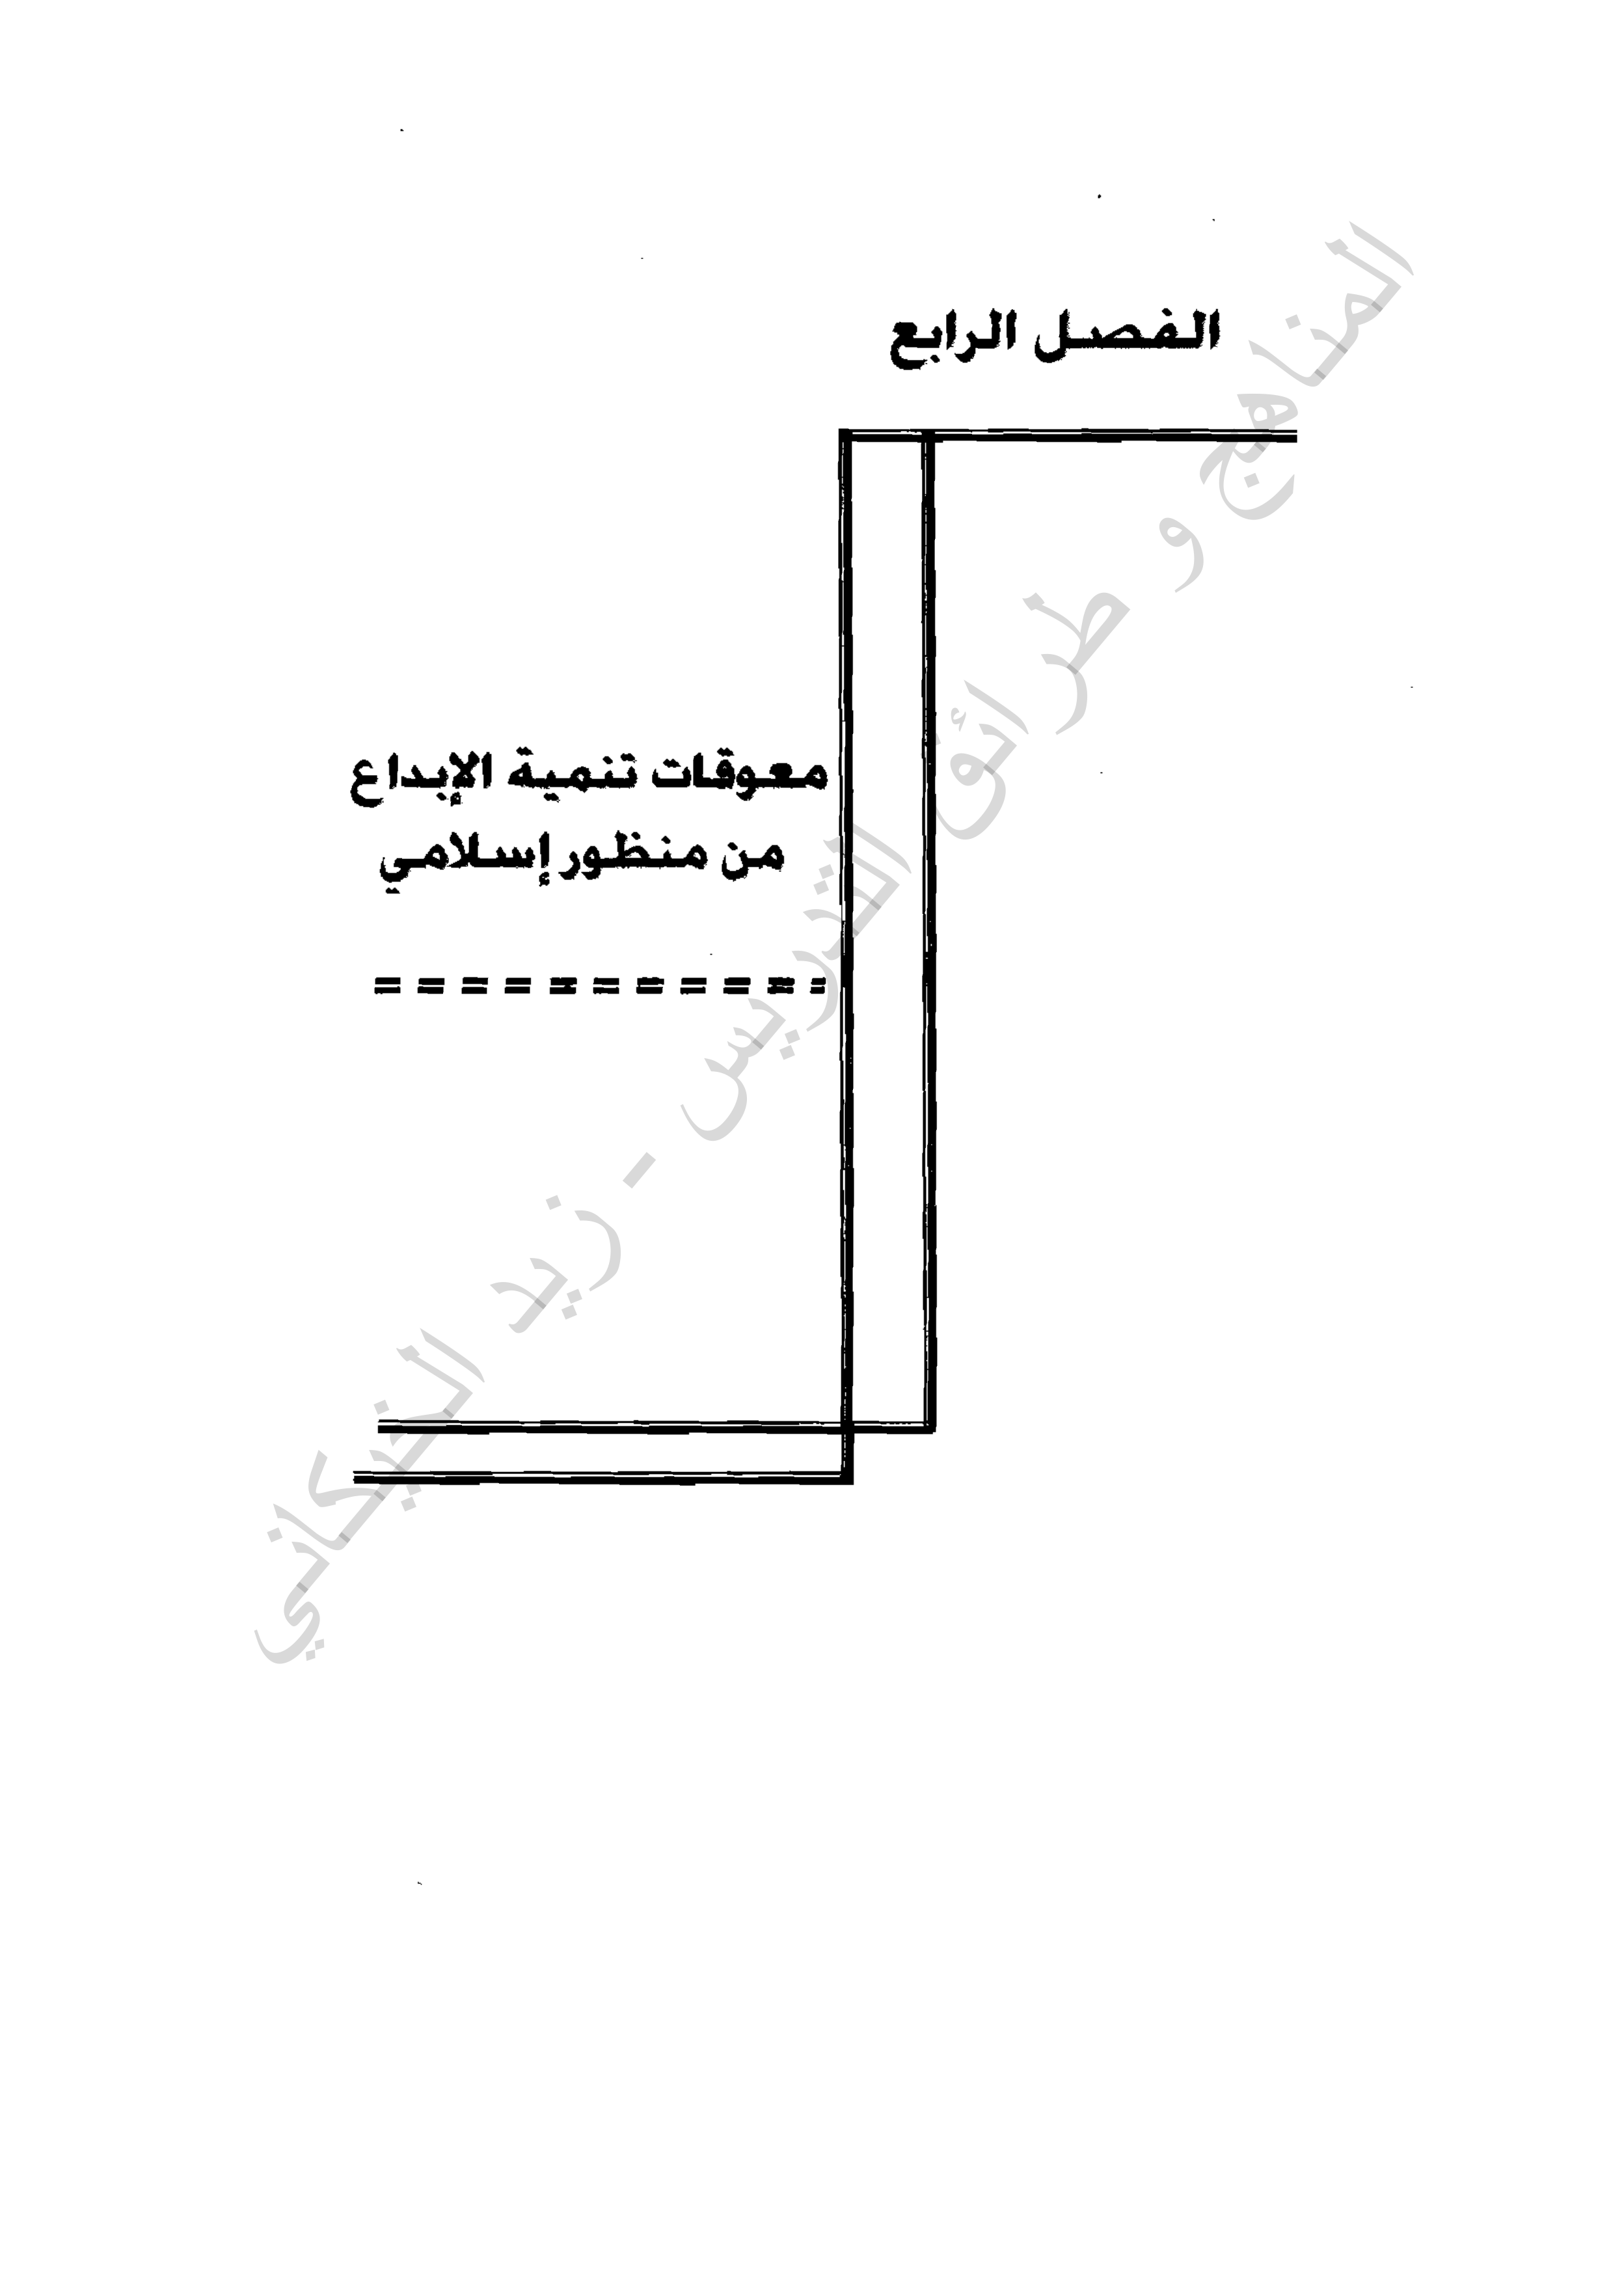 الفصل الرابع
معوقات تنمية الإبداع
من منظور إسلامي
المناهج و طرائق التدريس - زيد الخيكاني